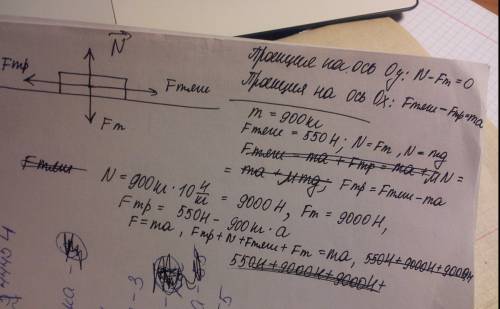 N
Fтр
Fтяги
Fт
Проекция на ось Oy: N-Fт=0
Проекция на ось Ox: Fтяги-Fтр=ma
m = 900 кг
Fтяги = 550 Н; N=Fт, N=mg
Fтяги = ma + Fтр = ma + μN =
= ma + μmg; Fтр=Fтяги-ma
Fтяги
N = 900 кг · 10 Н/кг = 9000 Н, Fт = 9000 Н,
Fтр = 550 Н - 900 кг · a
F=ma, Fтр+N+Fтяги+Fт=ma, 550Н+9000Н+9000Н
550Н+9000Н+9000Н+